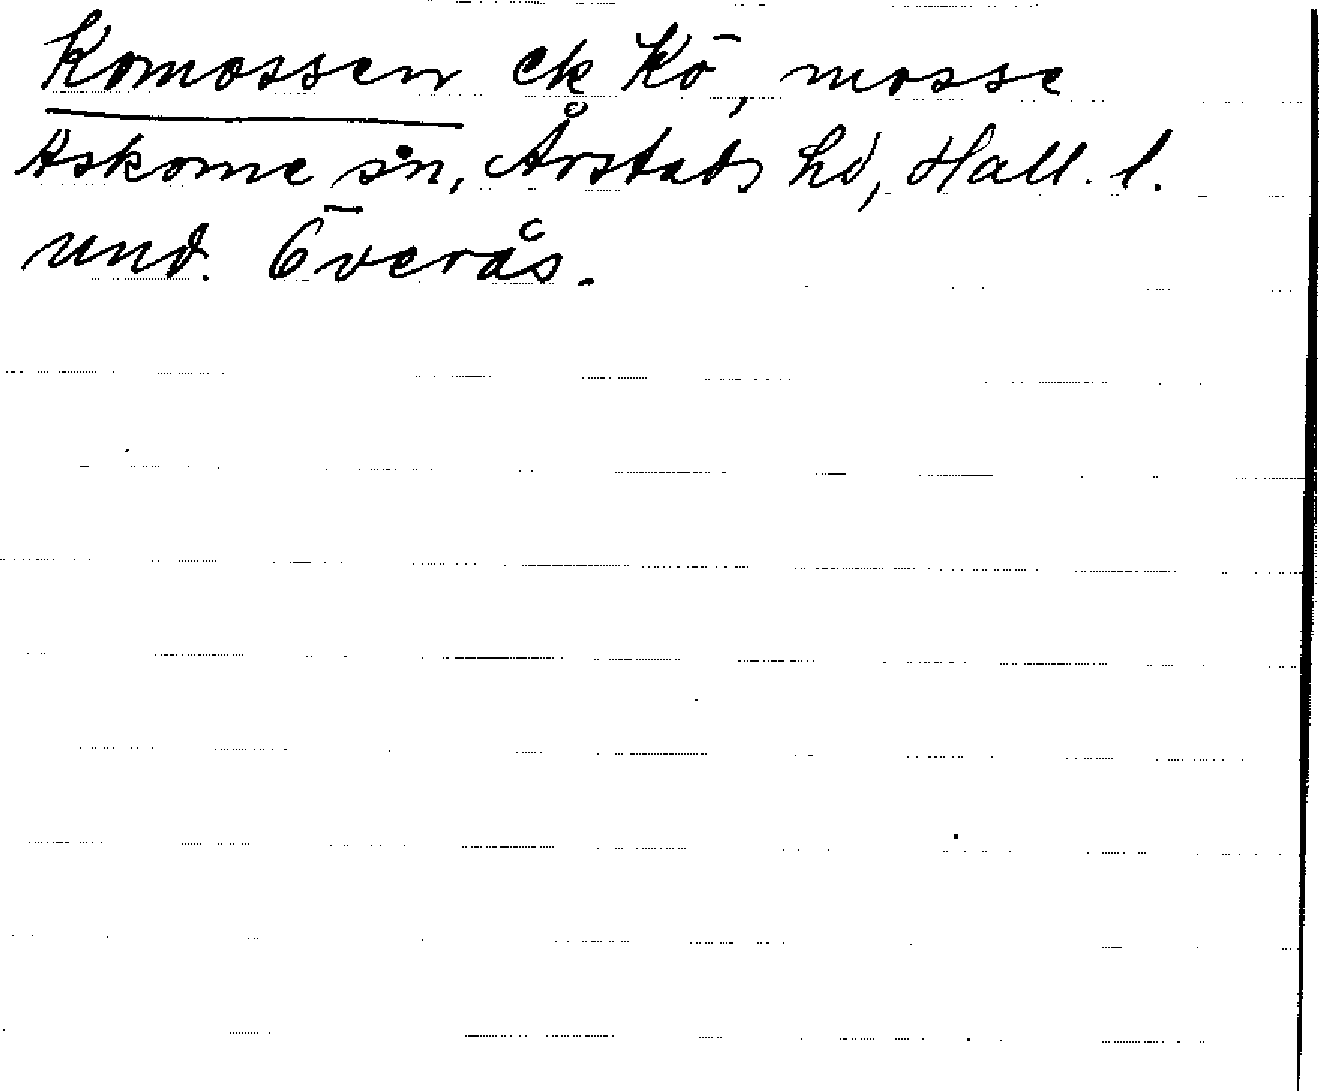 Komossen ek Kō, mosse
Askome sn, Årstads hd, Hall. l.
und. Överås.